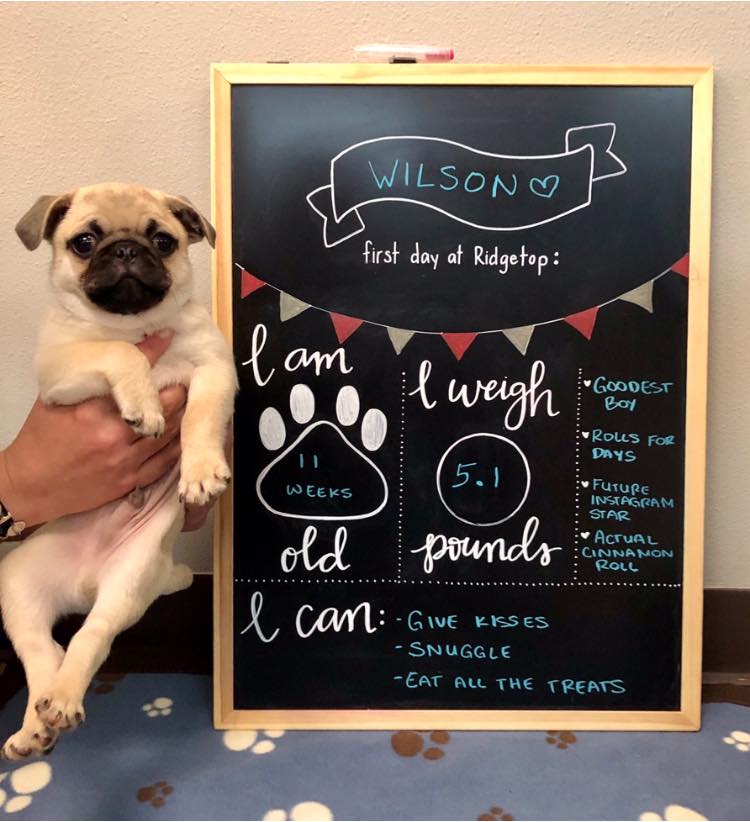 WILSON ♡
first day at Ridgetop:
I am
11
WEEKS
old
I weigh
5.1
pounds
♥ GOODEST
BOY
♥ ROLLS FOR
DAYS
♥ FUTURE
INSTAGRAM
STAR
♥ ACTUAL
CINNAMON
ROLL
I can: - GIVE KISSES
- SNUGGLE
- EAT ALL THE TREATS